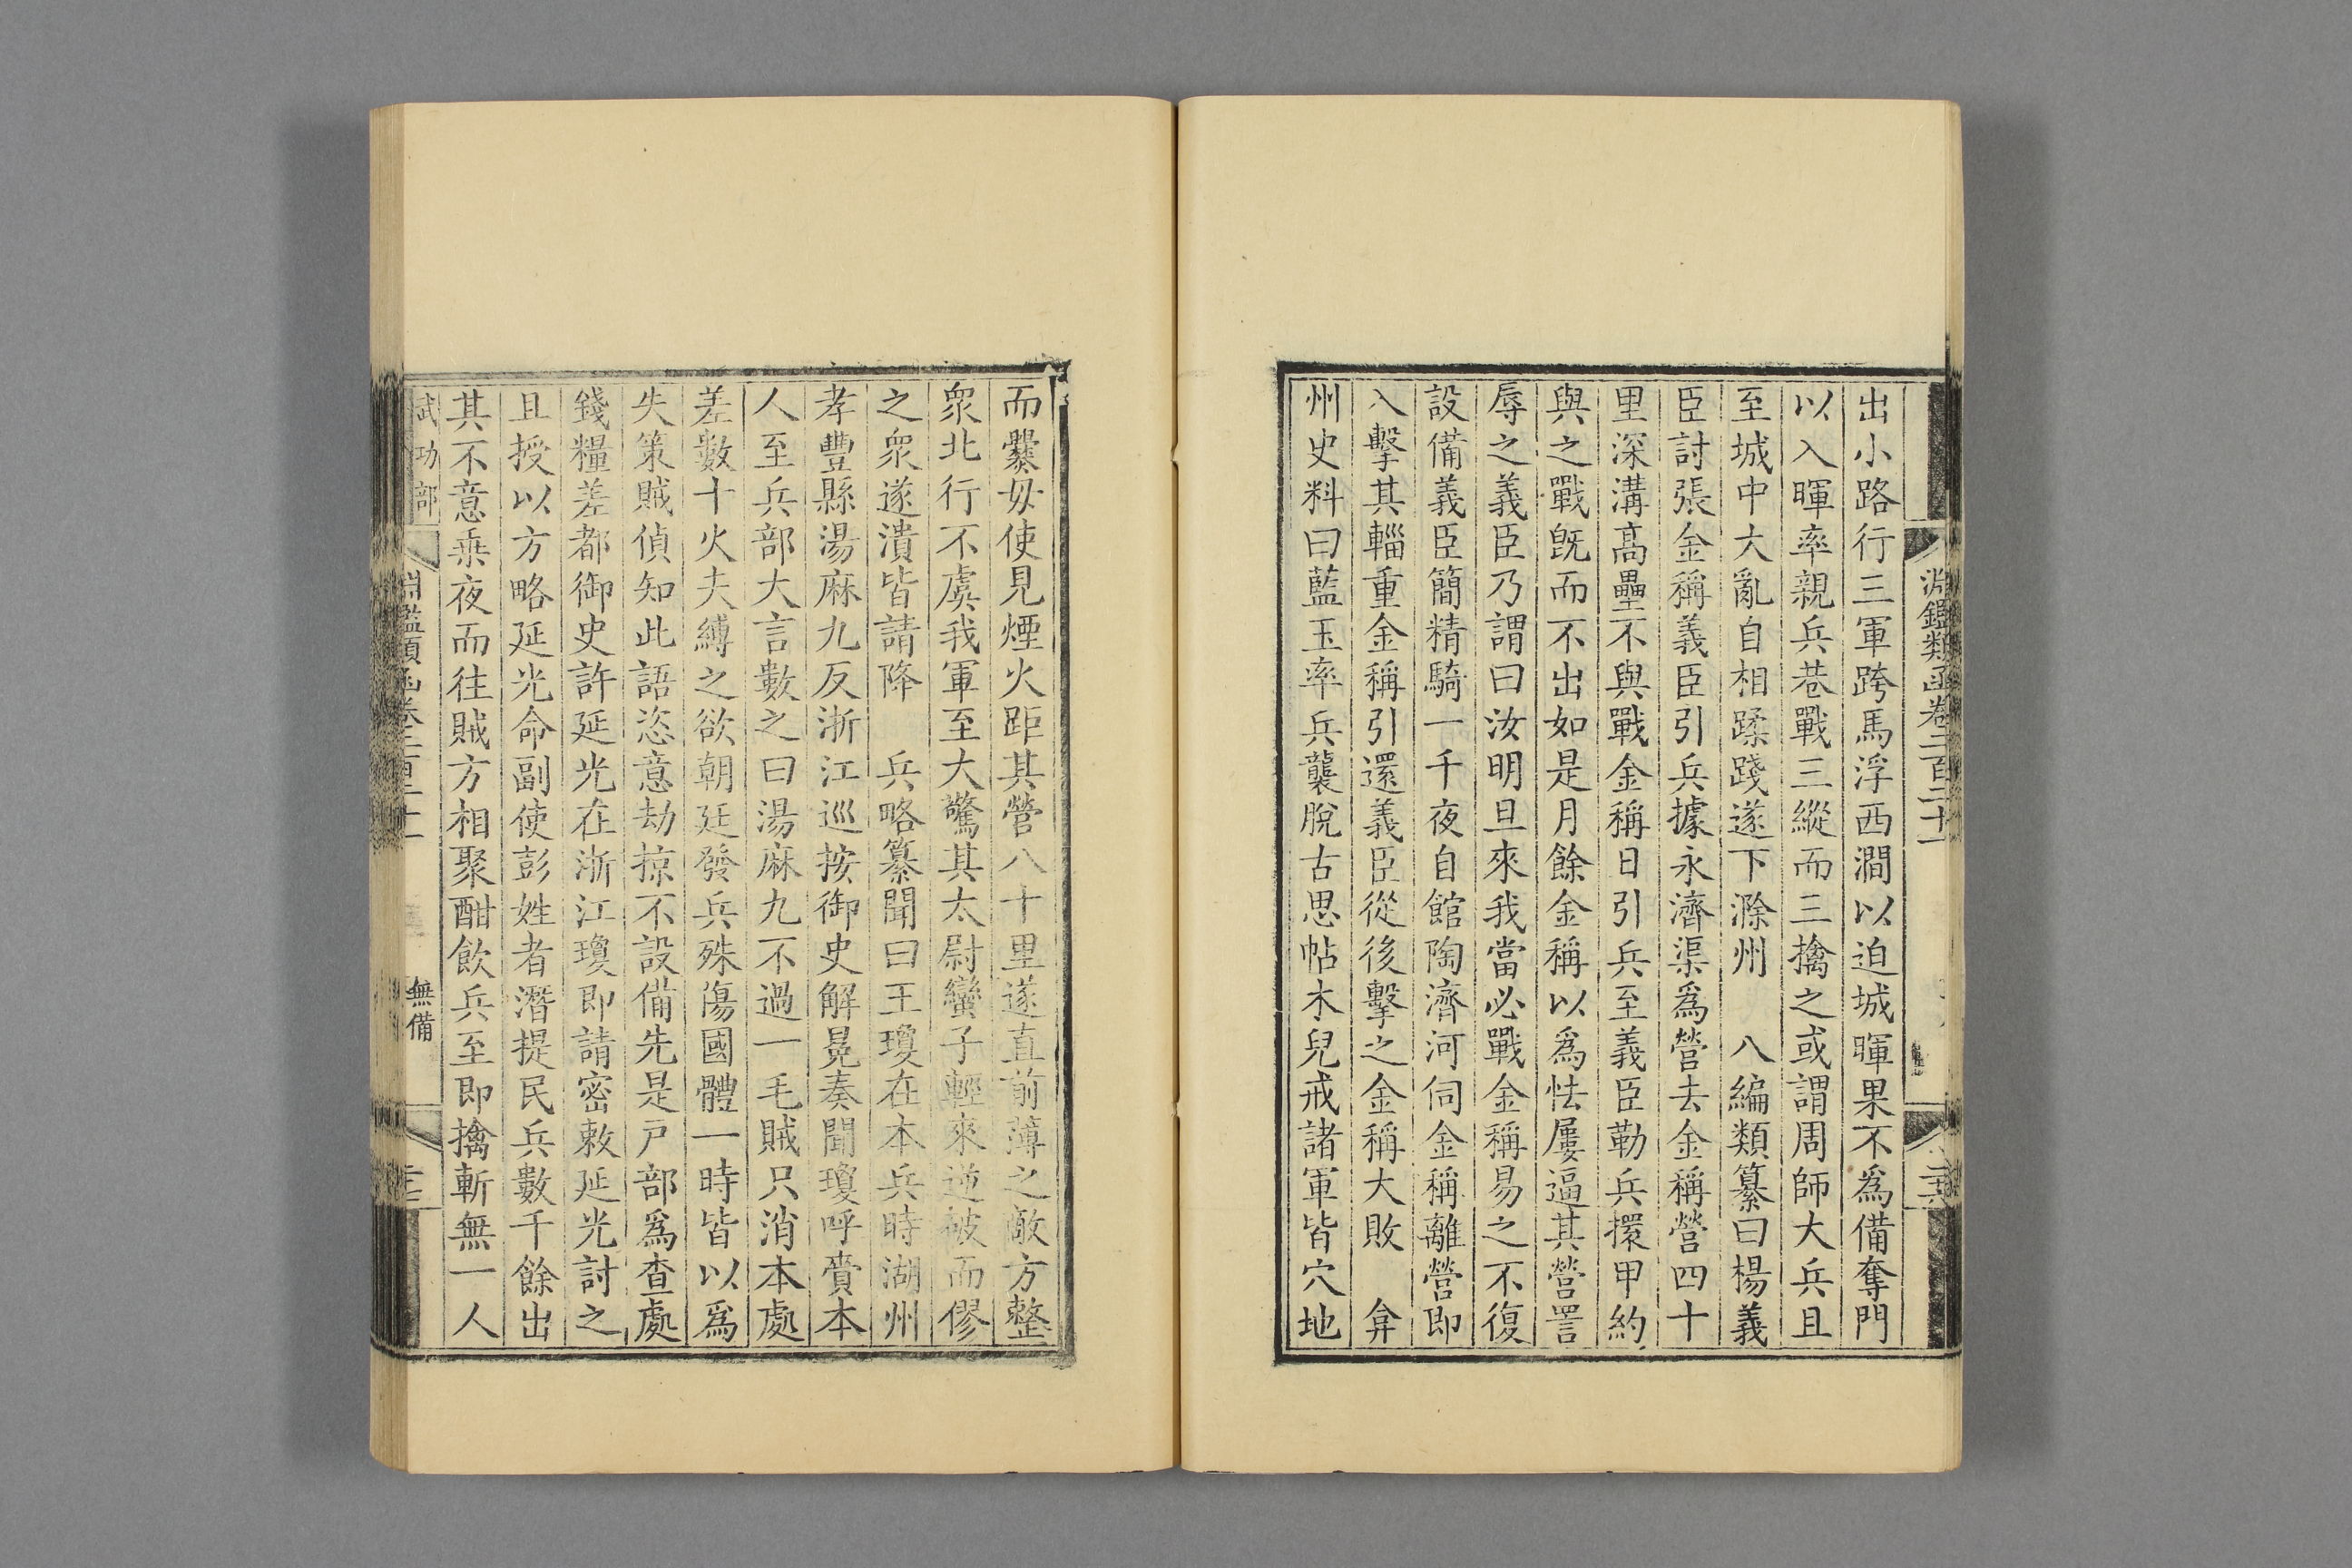 淵鑑類函卷二百二十一
出小路行三軍跨馬浮西澗以迫城暉果不爲備奪門
以入暉率親兵巷戰三縱而三擒之或謂周師大兵且
至城中大亂自相蹂踐遂下滁州　八編類纂曰楊義
臣討張金稱義臣引兵據永濟渠爲營去金稱營四十
里深溝高壘不與戰金稱日引兵至義臣勒兵擐甲約
與之戰旣而不出如是月餘金稱以爲怯屢逼其營詈
辱之義臣乃謂曰汝明旦來我當必戰金稱易之不復
設備義臣簡精騎一千夜自館陶濟河伺金稱離營即
入擊其輜重金稱引還義臣從後擊之金稱大敗　弇
州史料曰藍玉率兵襲脫古思帖木兒戒諸軍皆穴地
而爨毋使見煙火距其營八十里遂直前薄之敵方整
衆北行不虞我軍至大驚其太尉蠻子輕來逆被而僇
之衆遂潰皆請降　兵略纂聞曰王瓊在本兵時湖州
孝豐縣湯麻九反浙江巡按御史解冕奏聞瓊呼賫本
人至兵部大言數之曰湯麻九不過一毛賊只消本處
差數十火夫縛之欲朝廷發兵殊傷國體一時皆以爲
失策賊偵知此語恣意劫掠不設備先是戶部爲查處
錢糧差都御史許延光在浙江瓊即請密敕延光討之
且授以方略延光命副使彭姓者潛提民兵數千餘出
其不意乗夜而往賊方相聚酣飲兵至即擒斬無一人
武功部
淵鑑類函卷二百二十一
無備